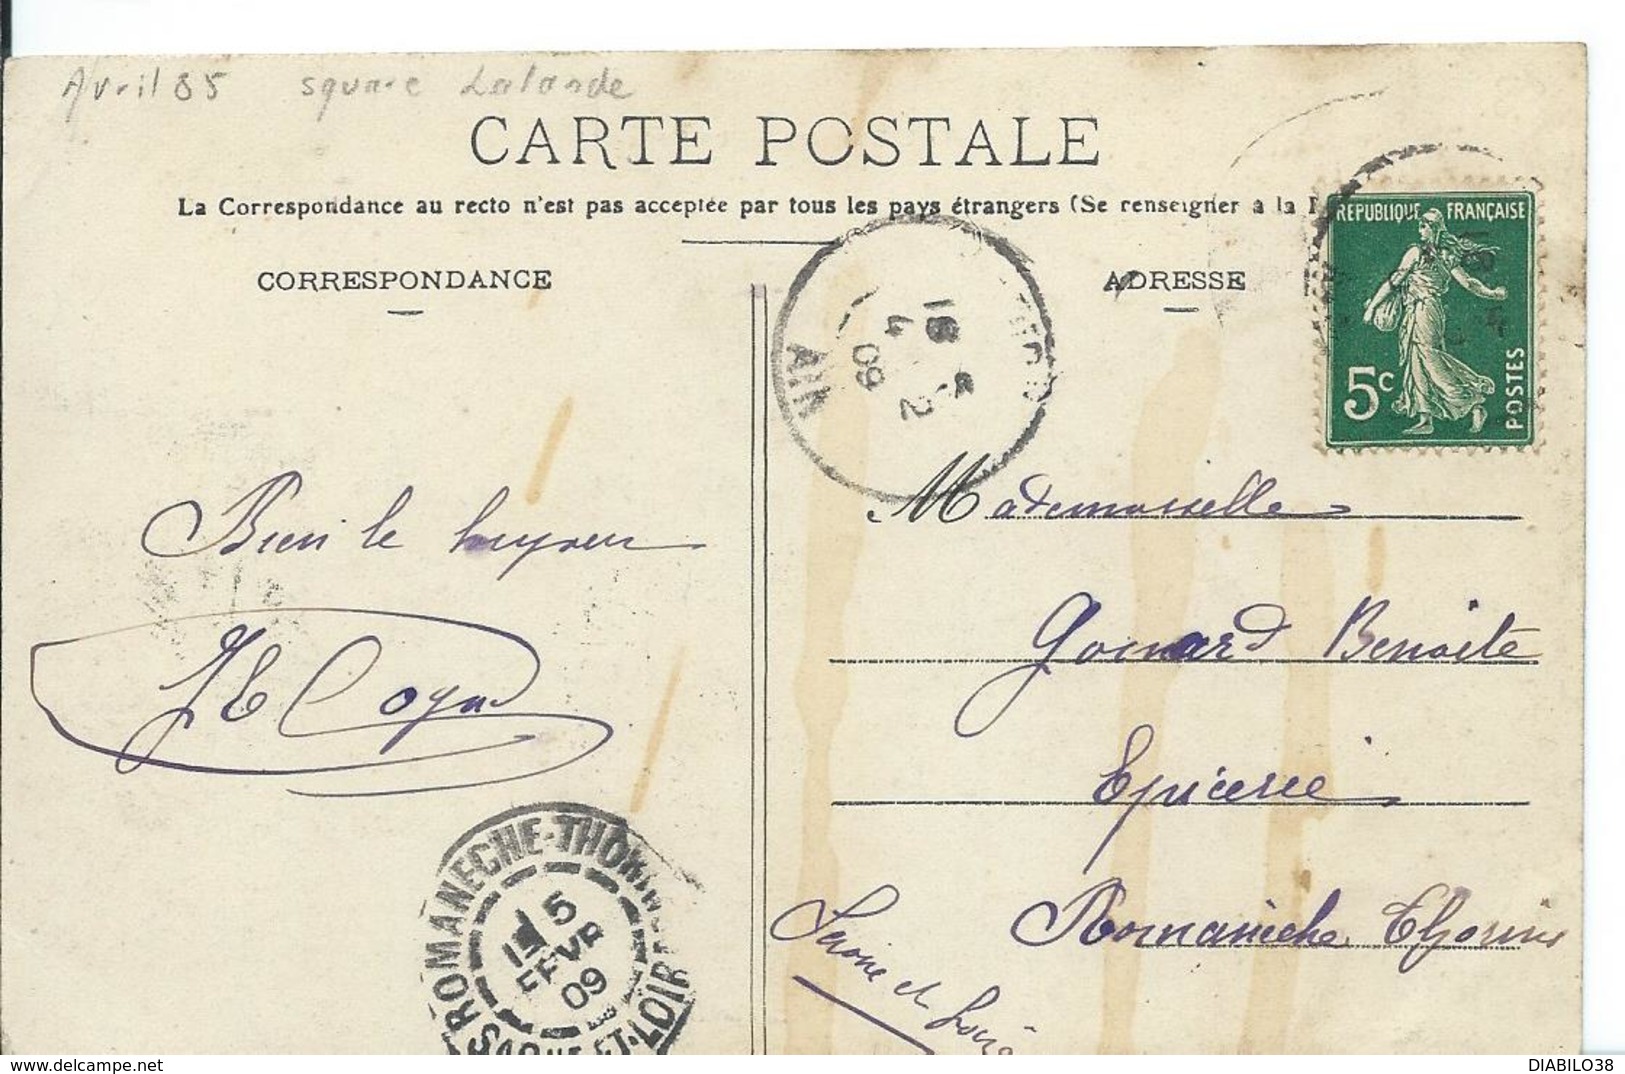 Avril 85 square Lalande
CARTE POSTALE
La Correspondance au recto n'est pas acceptée par tous les pays étrangers (Se renseigner à la
REPUBLIQUE FRANÇAISE
5c
POSTES
CORRESPONDANCE
ADRESSE
18
4 2
09
AIN
Mademoiselle
Bien le
Gonnard Benoite
Epicerie
Romanèche Thorins
Saone et Loire
ROMANECHE-THORIN
5
FEVR
09
SAONE-ET-LOIRE
DIABILO38